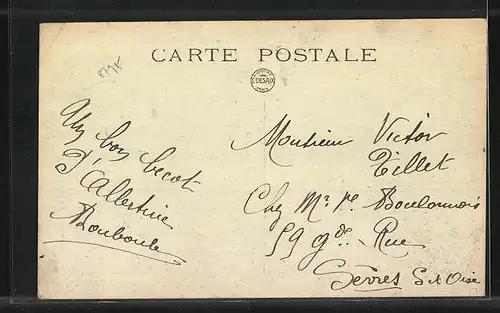 8798
CARTE POSTALE
E. DESAIX
PARIS
Un bon becot
D'Allertine
Bouboule
Monsieur Victor
Tillet
Chez Mr Boulonnois
59 gde Rue
Sèvres S et Oise